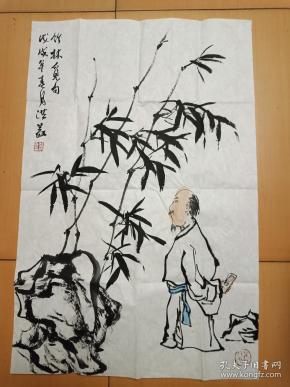 竹林觅句
戊戌年春月洪义
孔夫子旧书网
www.kongfz.com